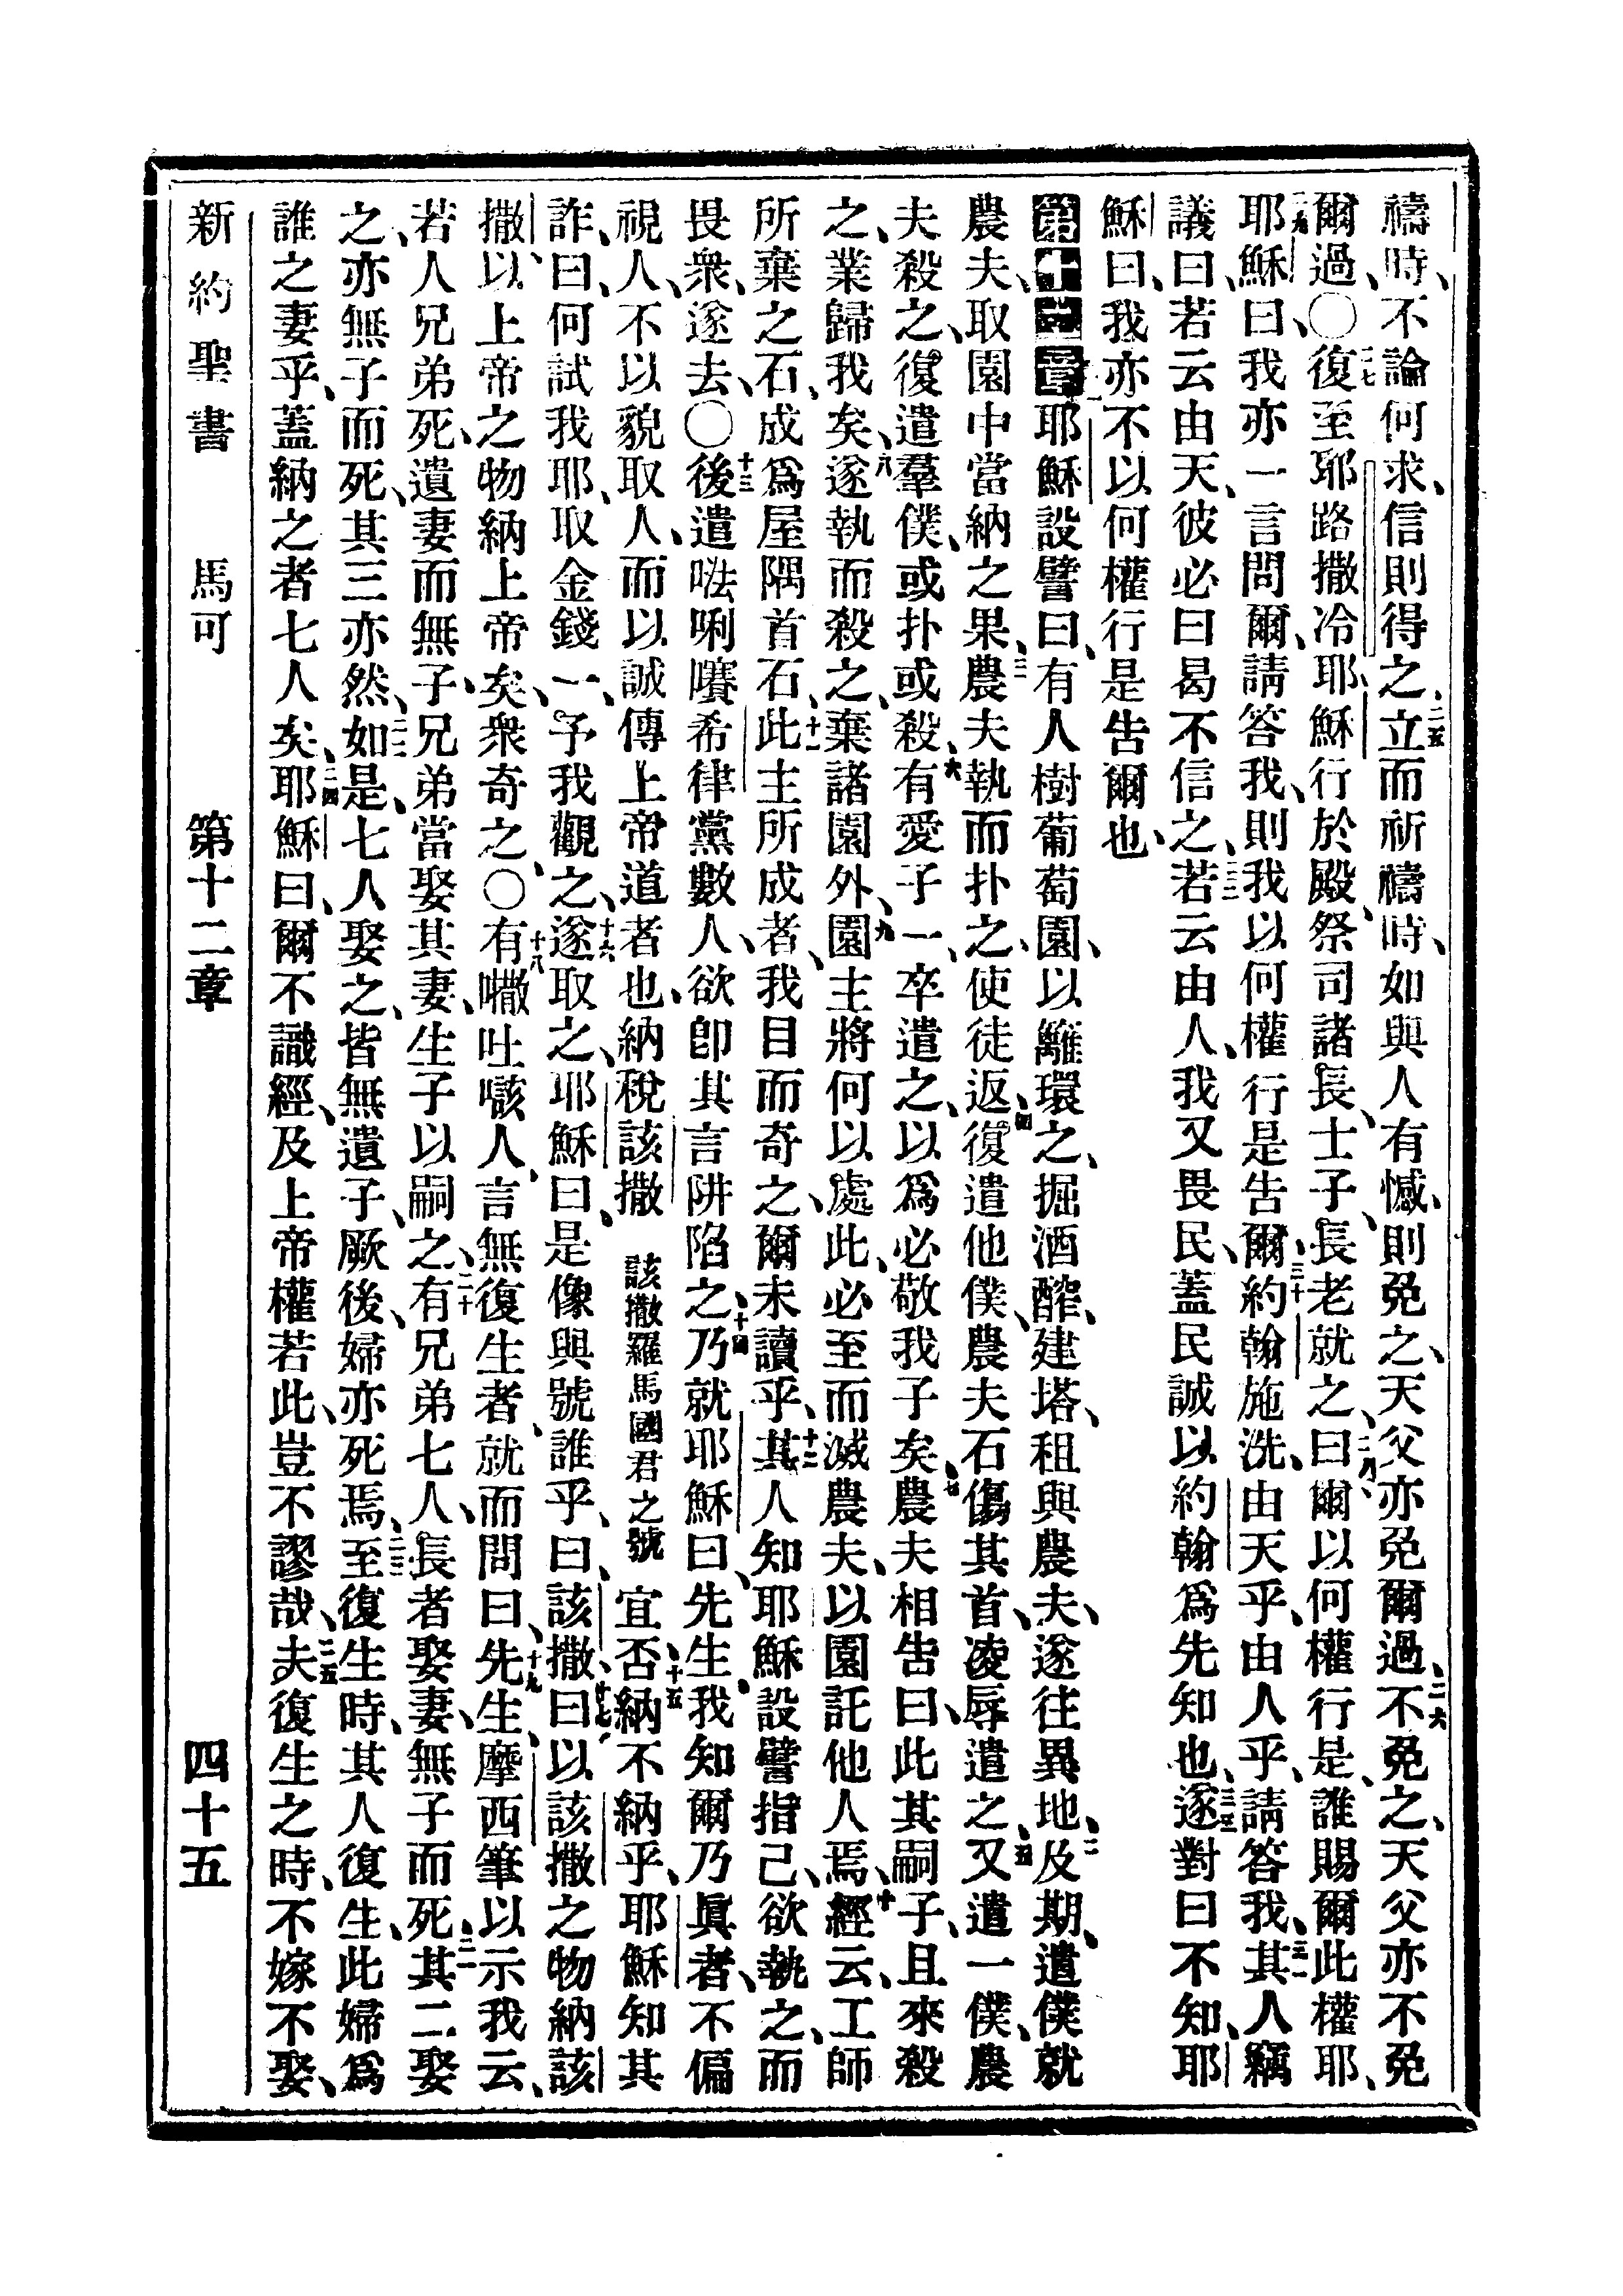 禱時、不論何求、信則得之、二五立而祈禱時、如與人有憾、則免之、天父亦免爾過、二六不免之、天父亦不免
爾過、〇二七復至耶路撒冷、耶穌行於殿、祭司諸長、士子、長老就之、二八曰、爾以何權行是、誰賜爾此權耶、
二九耶穌曰、我亦一言問爾、請答我、則我以何權行是告爾、三十約翰施洗、由天乎、由人乎、請答我、三一其人竊
議曰、若云由天、彼必曰曷不信之、三二若云由人、我又畏民、蓋民誠以約翰爲先知也、三三遂對曰不知、耶
穌曰、我亦不以何權行是告爾也、
第十二章一耶穌設譬曰、有人樹葡萄園、以籬環之、掘酒醡、建塔、租與農夫、遂往異地、二及期、遣僕就
農夫、取園中當納之果、三農夫執而扑之、使徒返、四復遣他僕、農夫石傷其首、凌辱遣之、五又遣一僕、農
夫殺之、復遣羣僕、或扑或殺、六有愛子一、卒遣之、以爲必敬我子矣、七農夫相告曰、此其嗣子、且來殺
之、業歸我矣、八遂執而殺之、棄諸園外、九園主將何以處此、必至而滅農夫、以園託他人焉、十經云、工師
所棄之石、成爲屋隅首石、十一此主所成者、我目而奇之、爾未讀乎、十二其人知耶穌設譬指己、欲執之、而
畏衆、遂去、〇十三後遣㗲唎㘔希律黨數人、欲卽其言阱陷之、十四乃就耶穌曰、先生、我知爾乃眞者、不偏
視人、不以貌取人、而以誠傳上帝道者也、納稅該撒 該撒羅馬國君之號 宜否、十五納不納乎、耶穌知其
詐、曰、何試我耶、取金錢一、予我觀之、十六遂取之、耶穌曰、是像與號誰乎、曰、該撒、十七曰、以該撒之物納該
撒、以上帝之物納上帝矣、衆奇之、〇十八有㘔吐㗡人、言無復生者、就而問曰、十九先生、摩西筆以示我云、
若人兄弟死、遺妻而無子、兄弟當娶其妻、生子以嗣之、二十有兄弟七人、長者娶妻、無子而死、二一其二娶
之、亦無子而死、其三亦然、二二如是、七人娶之、皆無遺子、厥後、婦亦死焉、二三至復生時、其人復生、此婦爲
誰之妻乎、蓋納之者七人矣、二四耶穌曰、爾不識經、及上帝權若此、豈不謬哉、二五夫復生之時、不嫁不娶、
新約聖書 馬可 第十二章 四十五